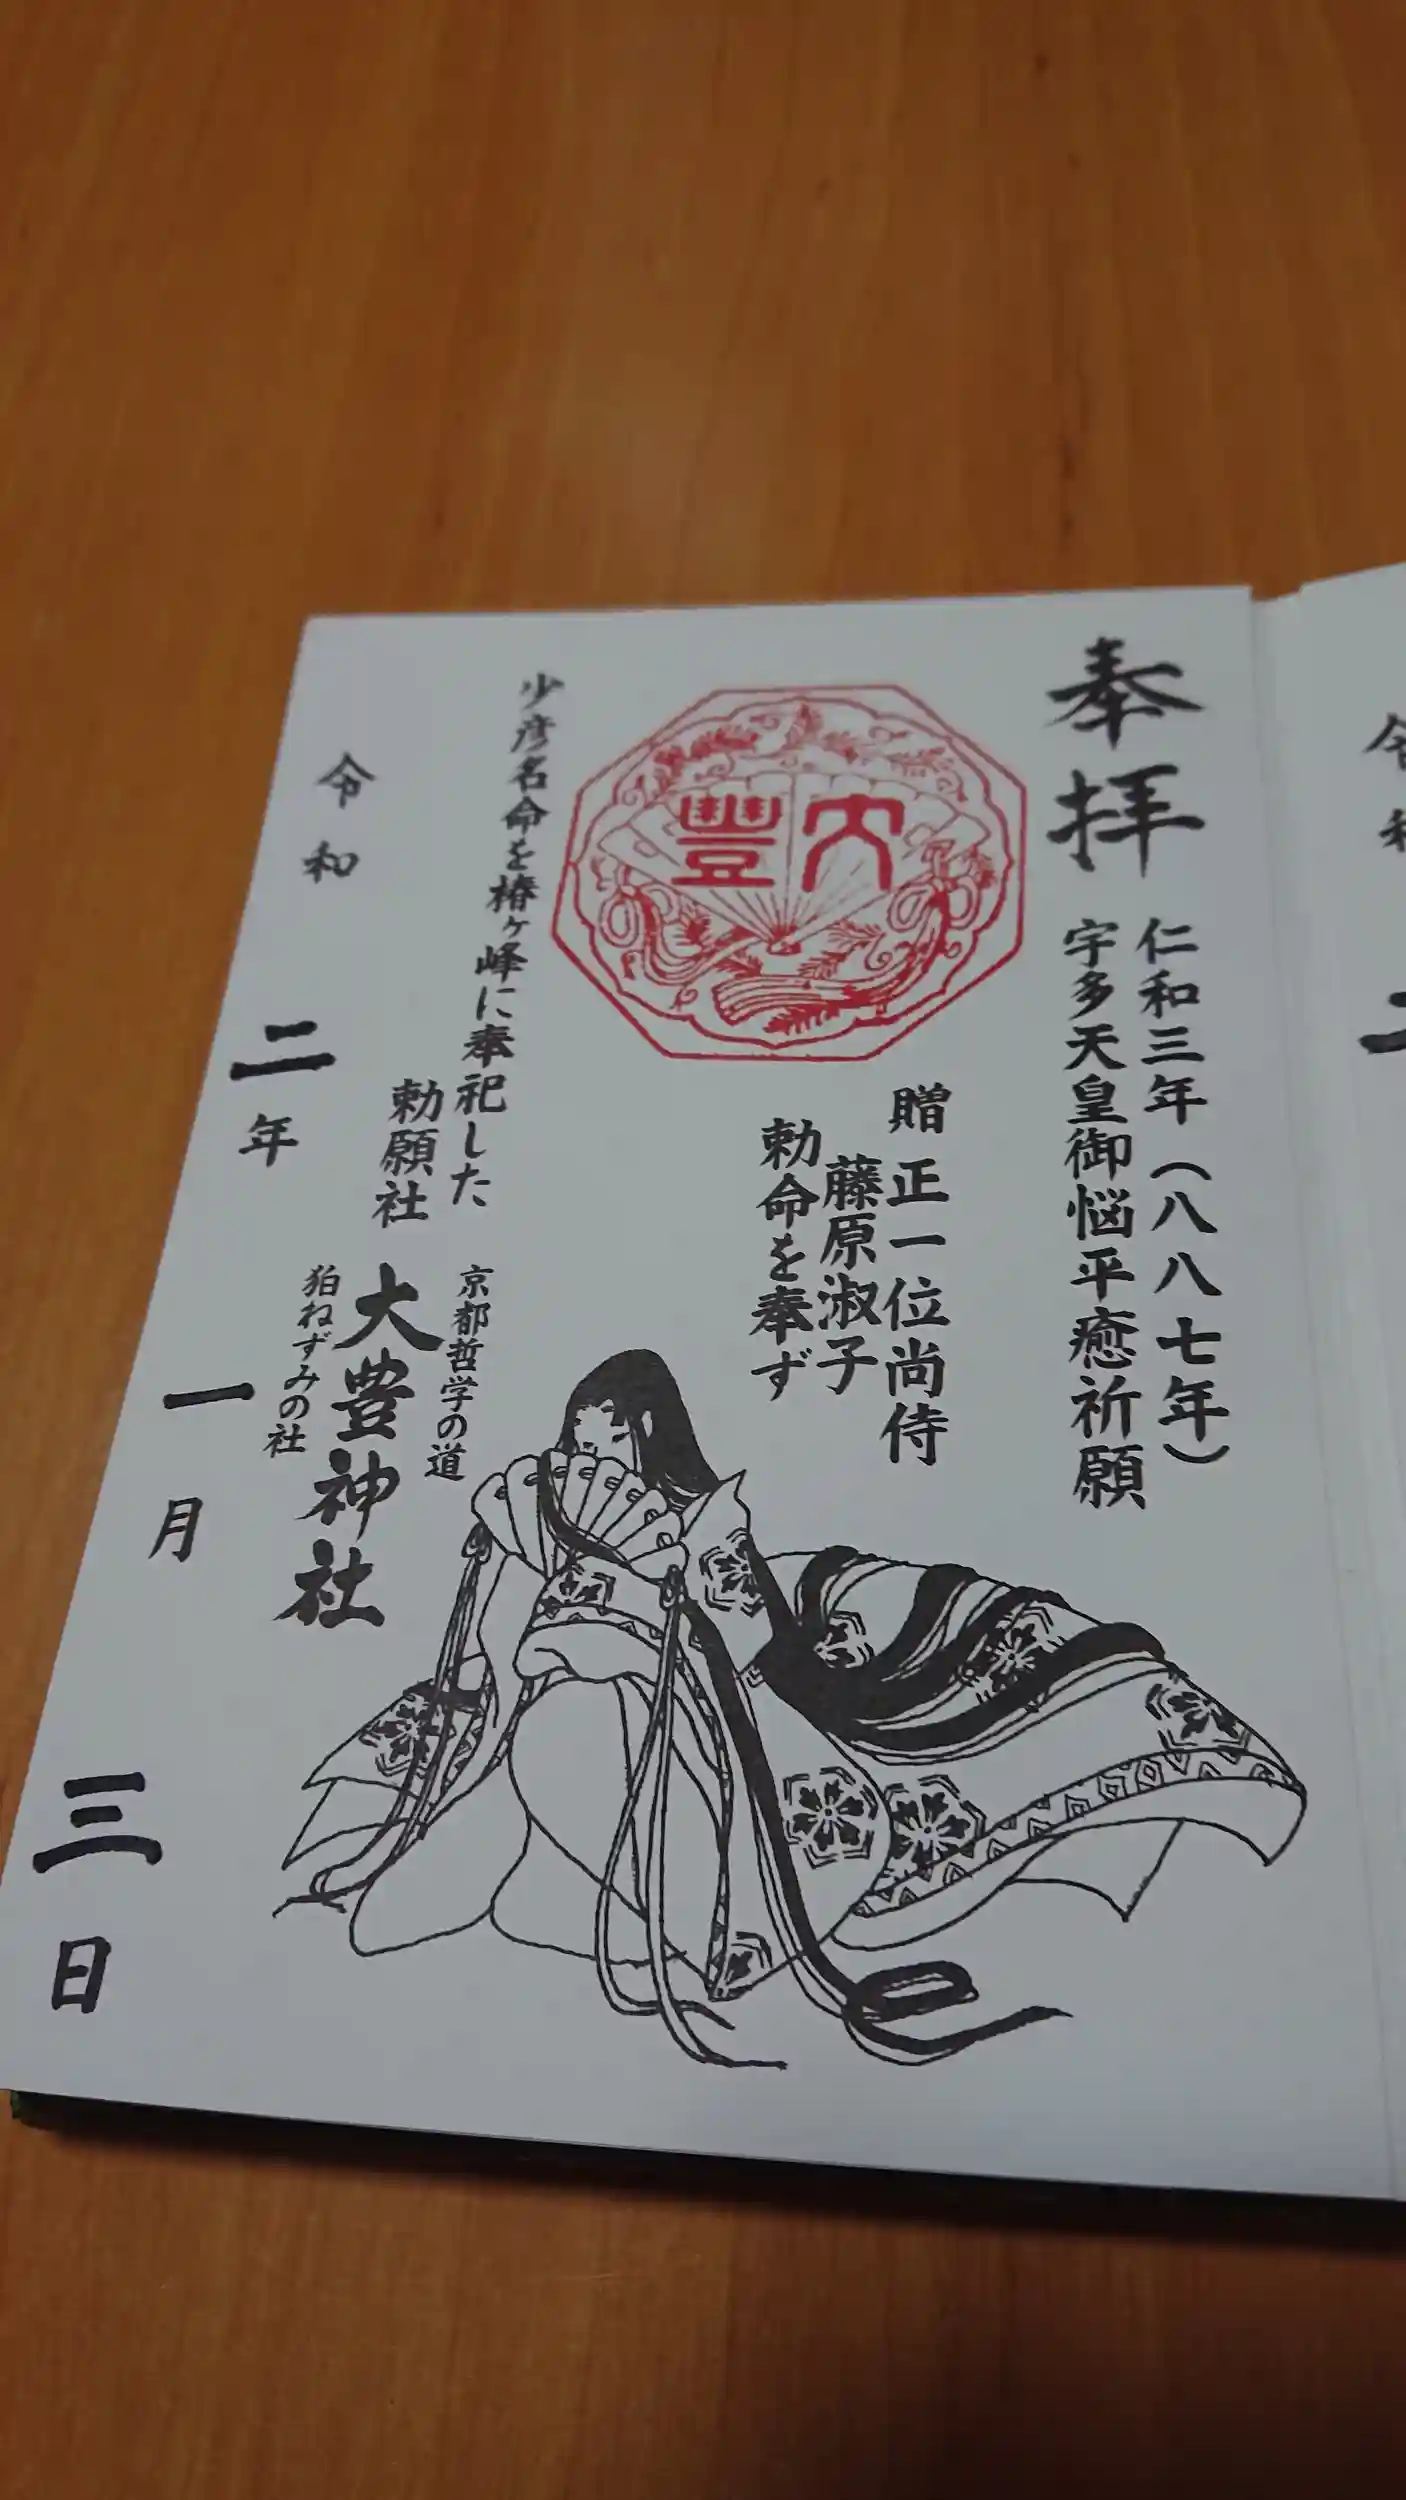 奉拝
仁和三年(八八七年)
宇多天皇御悩平癒祈願
贈正一位尚侍
藤原淑子
勅命を奉ず
大豊
少彦名命を椿ヶ峰に奉祀した
勅願社
京都哲学の道
大豊神社
狛ねずみの社
令和二年一月三日